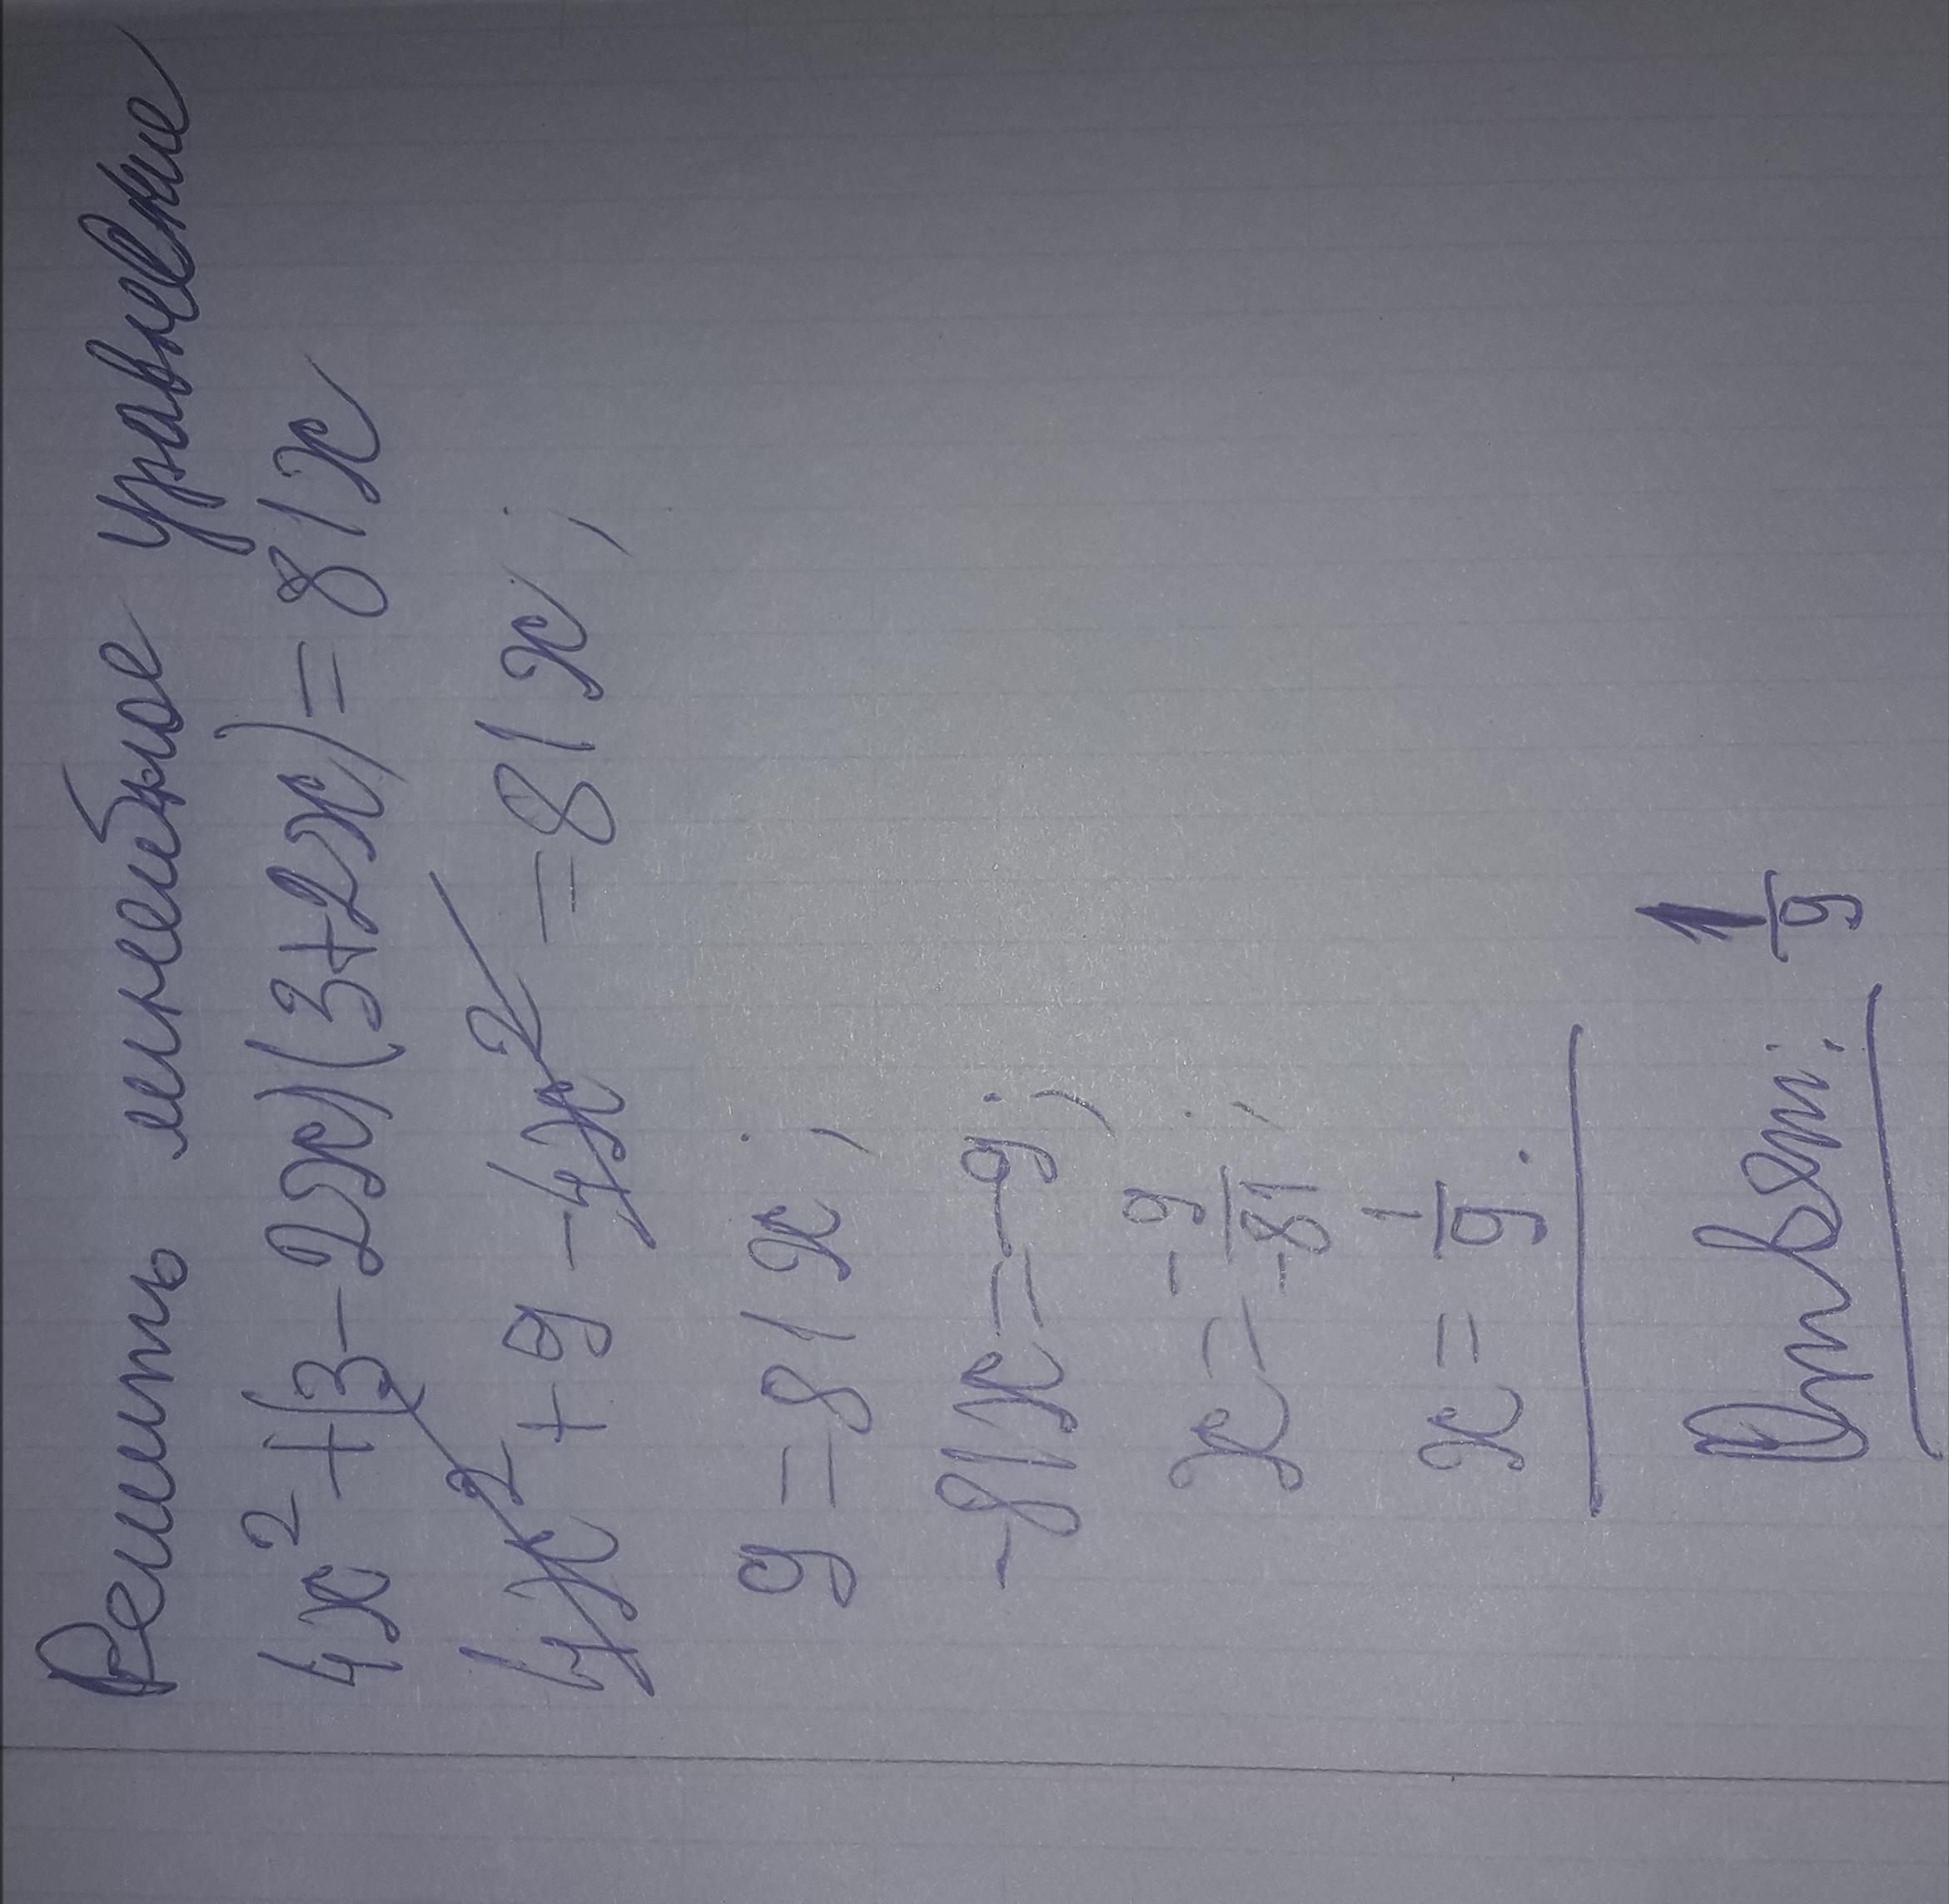 Решить линейное уравнение
4x² + (3 - 2x)(3 + 2x) = 81x
4x² + 9 - 4x² = 81x;
9 = 81x;
-81x = -9;
x = -9/-81;
x = 1/9.
Ответ: 1/9